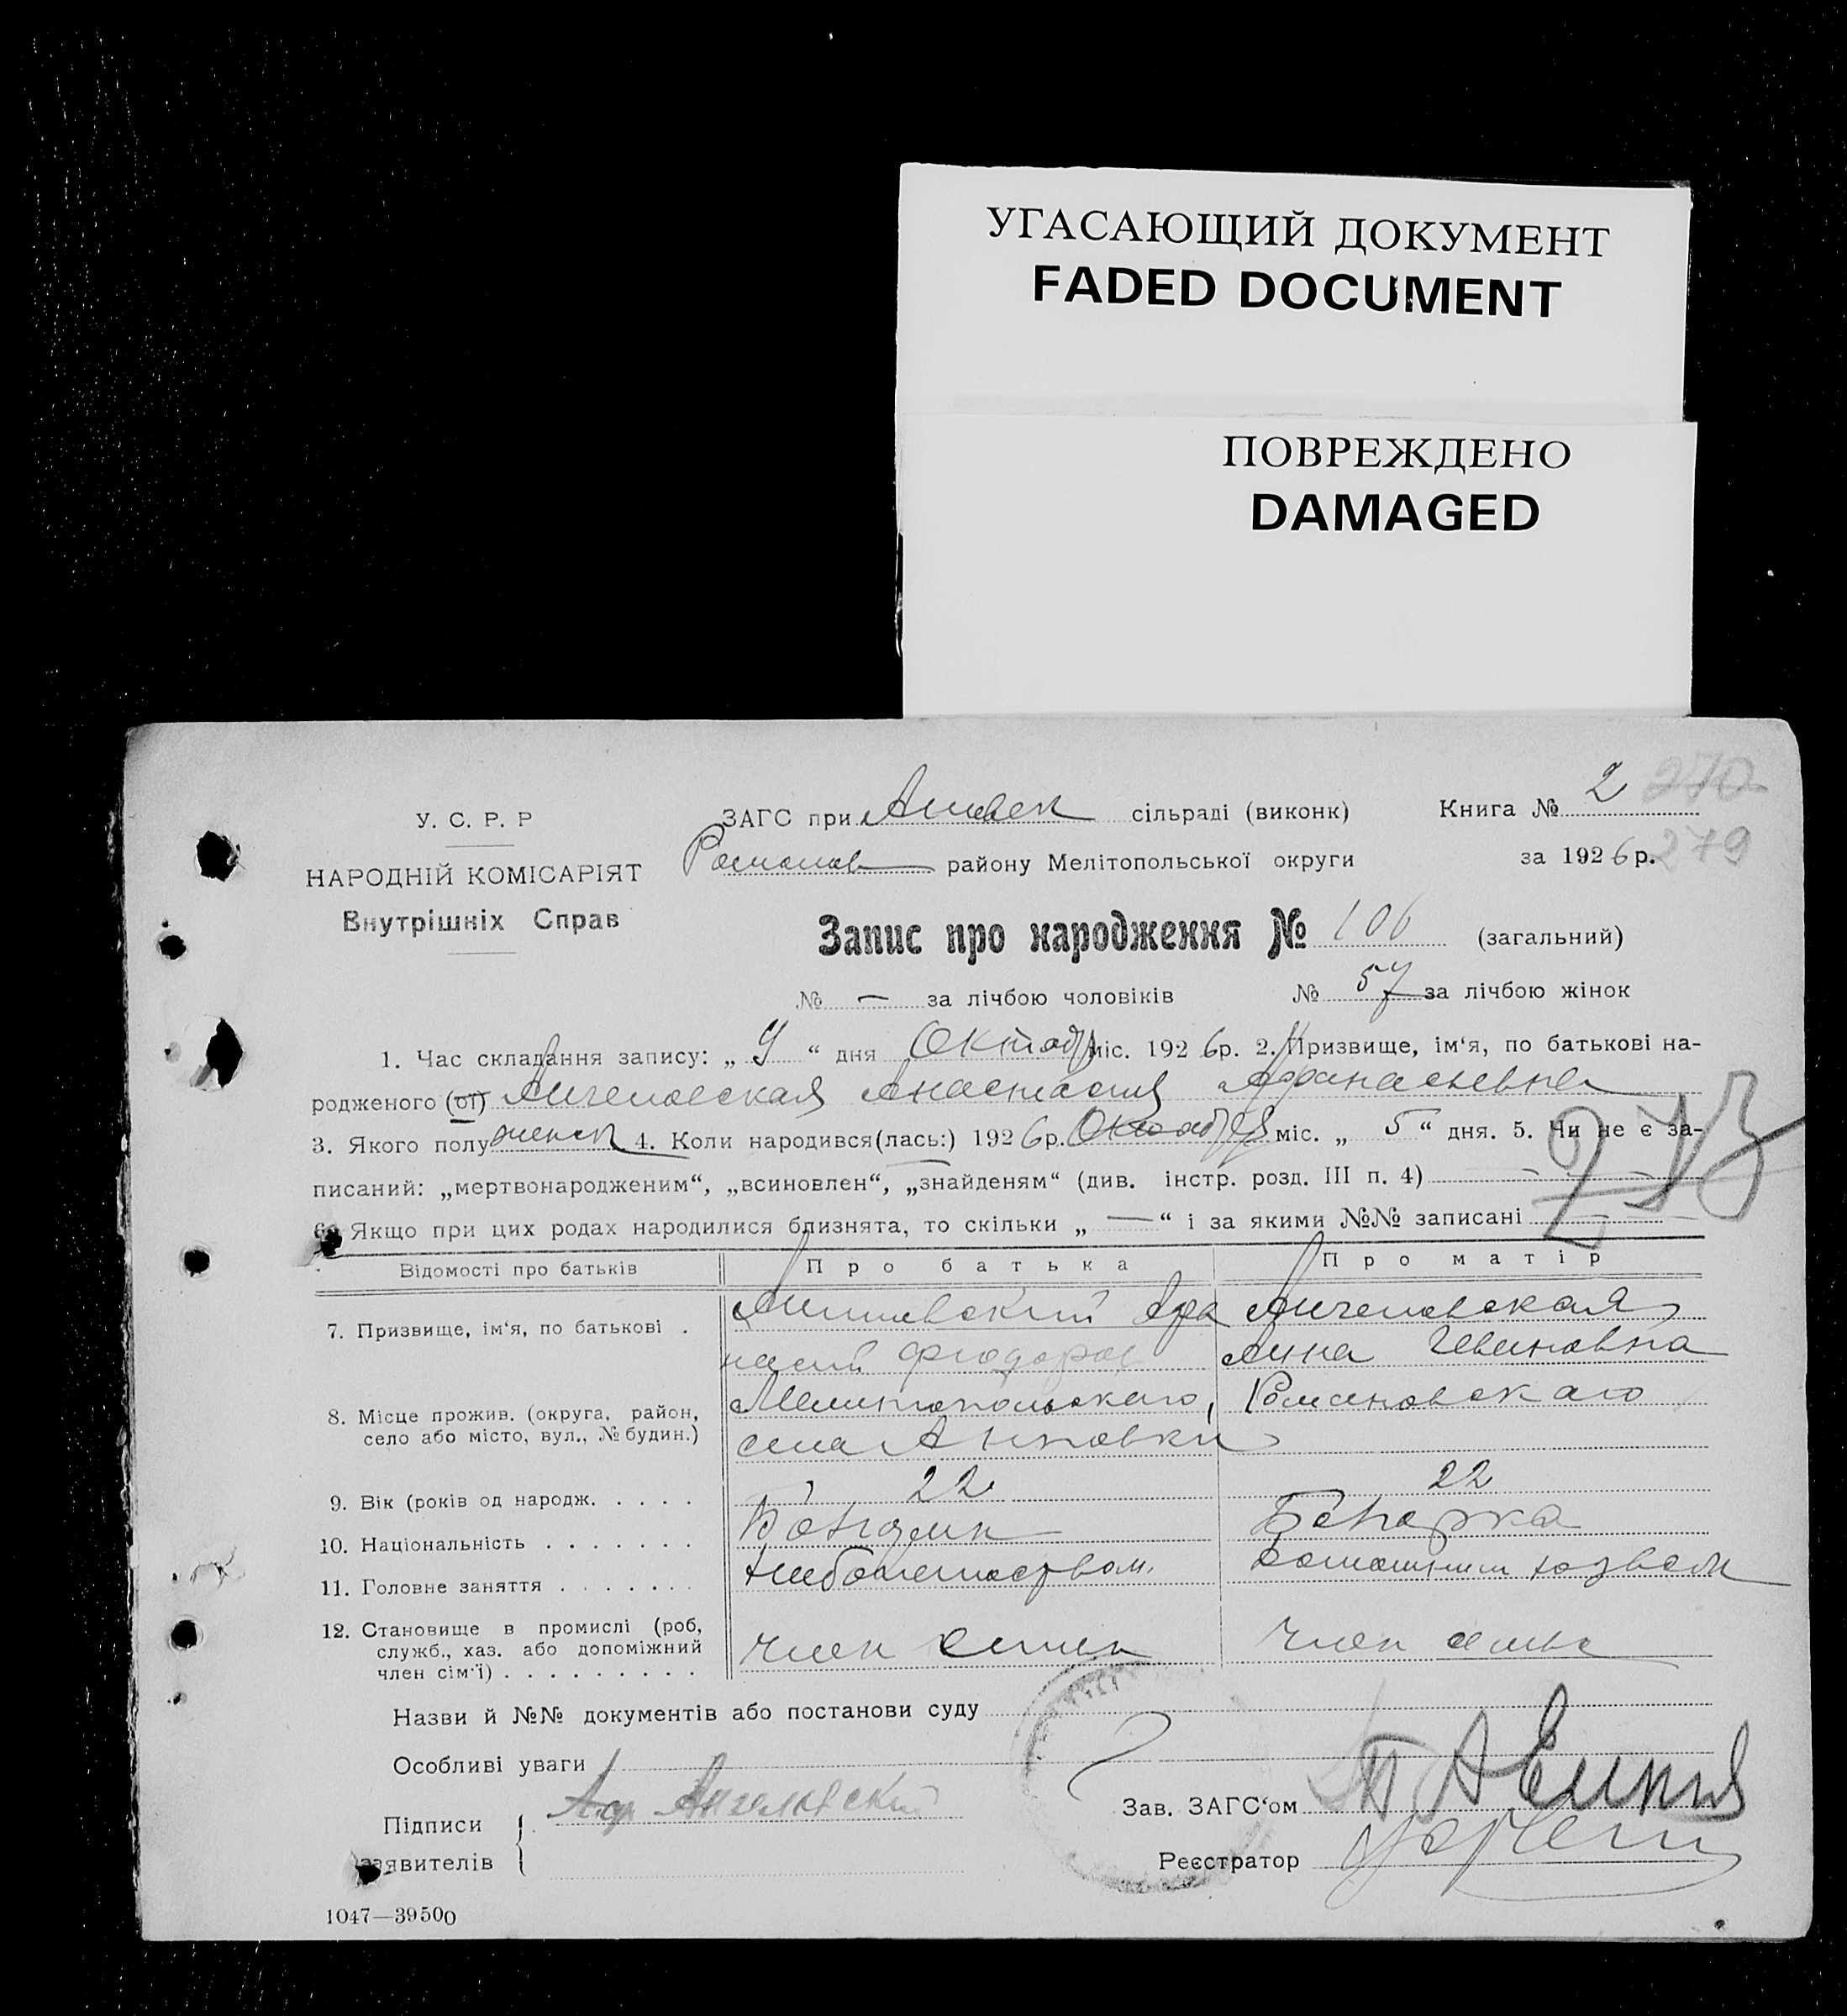 УГАСАЮЩИЙ ДОКУМЕНТ
FADED DOCUMENT
ПОВРЕЖДЕНО
DAMAGED
У. С. Р. Р
НАРОДНІЙ КОМІСАРІЯТ
Внутрішніх Справ
ЗАГС при сільраді (виконк)
Книга № 2 270
Романов району Мелітопольської округи
за 1926 р. 279
Запис про народження № 106 (загальний)
№ — за лічбою чоловіків № 57 за лічбою жінок
1. Час складання запису: „ 9 “ дня Октяб міс. 1926 р. 2. Призвище, ім'я, по батькові на-
родженого (ої) Ангеловская Анастасия Афанасьевна
3. Якого полу женск 4. Коли народився(лась:) 1926 р. Октября міс. „ 5 “ дня. 5. Чи не є за-
писаний: „мертвонародженим“, „всиновлен“, „знайденям“ (див. інстр. розд. III п. 4)
6. Якщо при цих родах народилися близнята, то скільки „ — “ і за якими №№ записані —
Відомості про батьків
Про батька
Про матір
7. Призвище, ім'я, по батькові .
Афа
насий Фіодоров
Ангеловская
Анна
8. Місце прожив. (округа, район,
село або місто, вул., № будин.)
Мелитопольскаго, Романовскаго
села Анновки
9. Вік (років од народж. . . . .
22
22
10. Національність . . . . . . .
11. Головне заняття . . . . . . .
Хлебопашеством.
домашним хозяет
12. Становище в промислі (роб,
служб., хаз. або допоміжний
член сім'ї) . . . . . . . . .
член семьи
член семьи
Назви й №№ документів або постанови суду
Особливі уваги
Підписи
заявителів
Аф Ангеловский
Зав. ЗАГС'ом
Реєстратор
1047—39500